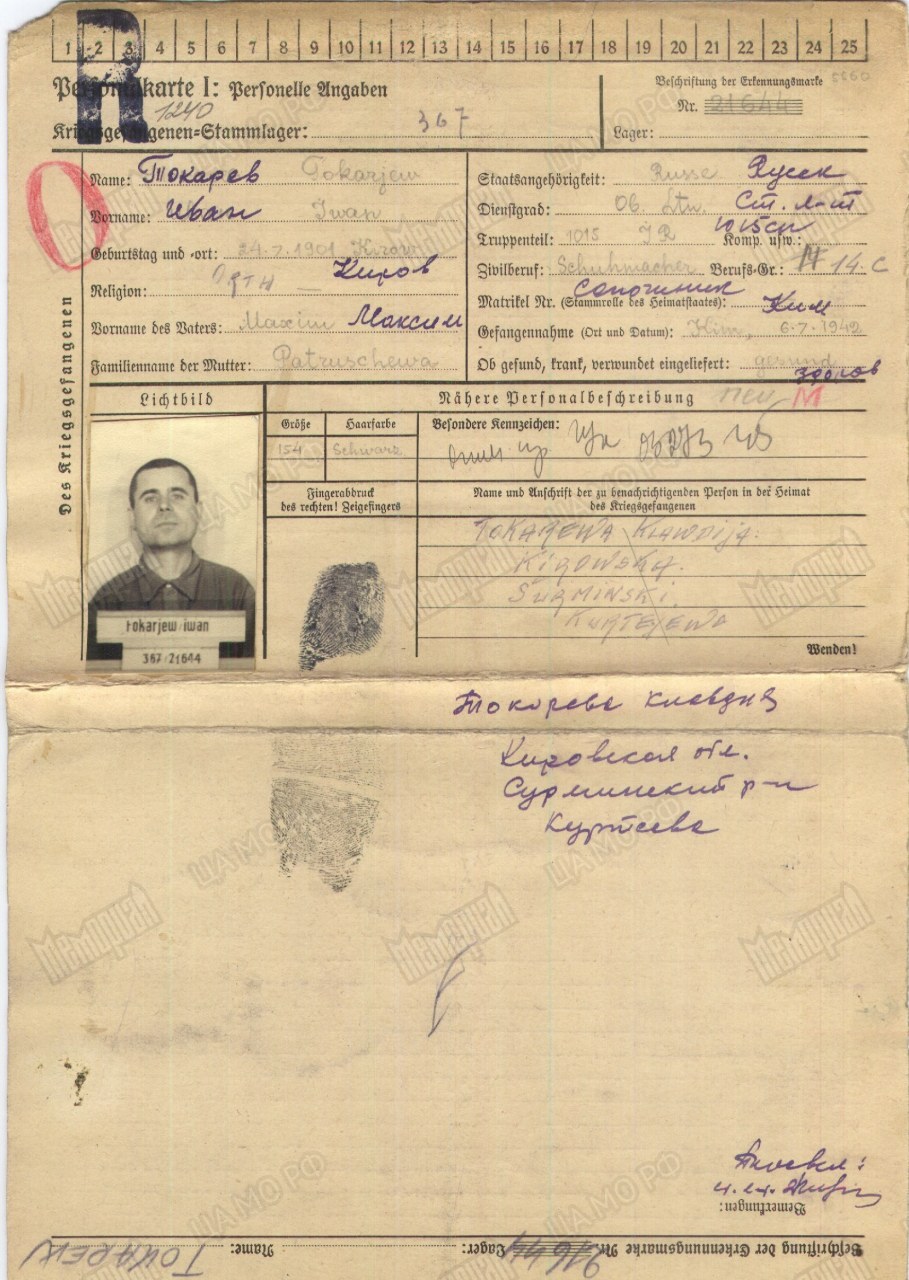 1 2 3 4 5 6 7 8 9 10 11 12 13 14 15 16 17 18 19 20 21 22 23 24 25
R
Personalkarte I: Personelle Angaben
Beschriftung der Erkennungsmarke
1240
Nr. 21644
Kriegsgefangenen-Stammlager: 367
Lager:
Des Kriegsgefangenen
Name: Токарев Tokarjew
Vorname: Иван Iwan
Geburtstag und -ort: 24.7.1901 Kirow
Киров
Religion:
Vorname des Vaters: Maxim Максим
Familienname der Mutter: Patruschewa
Staatsangehörigkeit: Russe Русск
Dienstgrad: Ob. Ltn. Ст. л-т
Truppenteil: 1015 IR 1015 сп Komp. usw.:
Zivilberuf: Schuhmacher Berufs-Gr.: 14 14.c
Сапожник
Matrikel Nr. (Stammrolle des Heimatstaates):
Ким
Gefangennahme (Ort und Datum): Kim, 6.7.1942
Ob gesund, krank, verwundet eingeliefert: gesund
здоров
Lichtbild
Nähere Personalbeschreibung neu M
Größe Haarfarbe
154 Schwarz
Besondere Kennzeichen:
Fingerabdruck
des rechten! Zeigefingers
Name und Anschrift der zu benachrichtigenden Person in der Heimat
des Kriegsgefangenen
TOKAREWA KLAWDIJA.
KIROWSKA.
SURMINSKI
tokarjew iwan
367 21644
Wenden!
Токарева Клавдия
Кировская обл.
Сурминский р-н
Куртеева
Bemerkungen:
Name: TOKAREW
Beschriftung der Erkennungsmarke Nr. 21644 Lager:
Мемориал
ЦА МО РФ